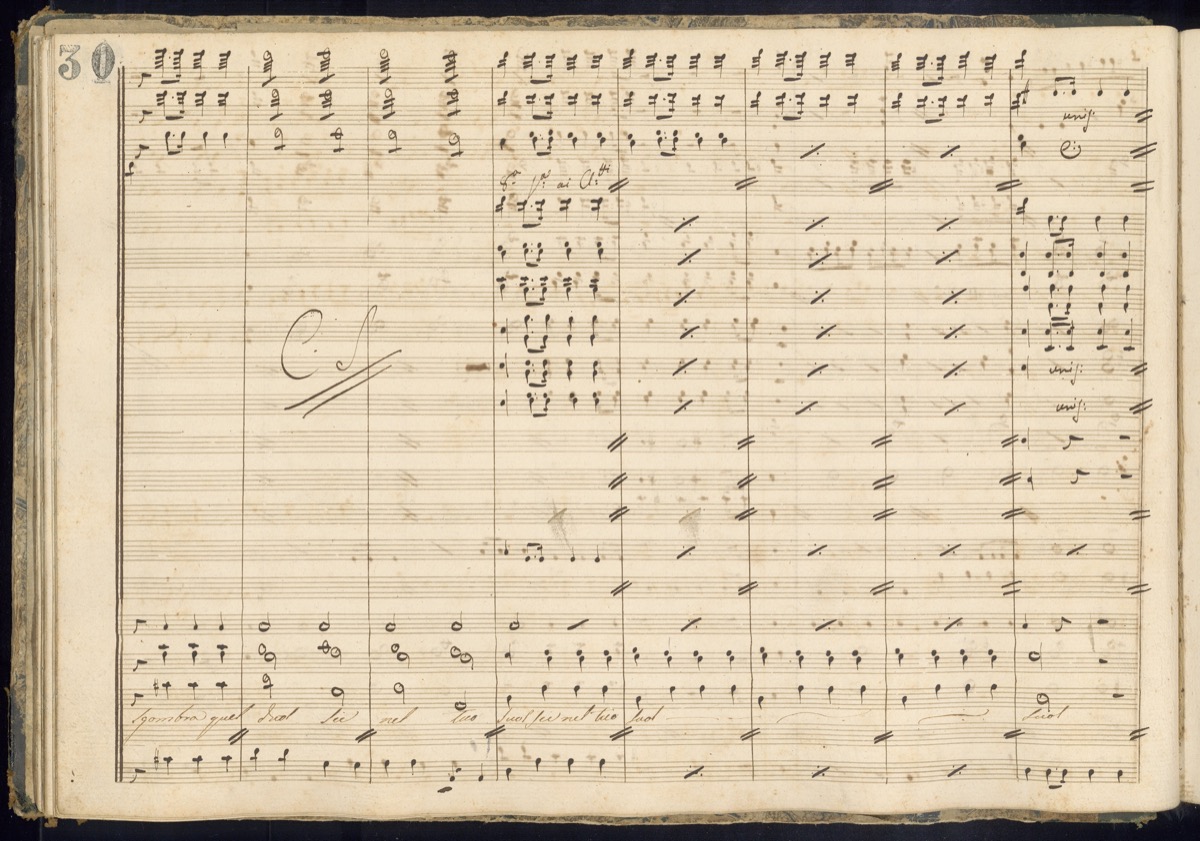 30
unis:
8.ª p.ª ai Cl.tti
C. S
unis:
unis:
sgombra quel duol sei nel tuo suol sei nel tuo suol suol